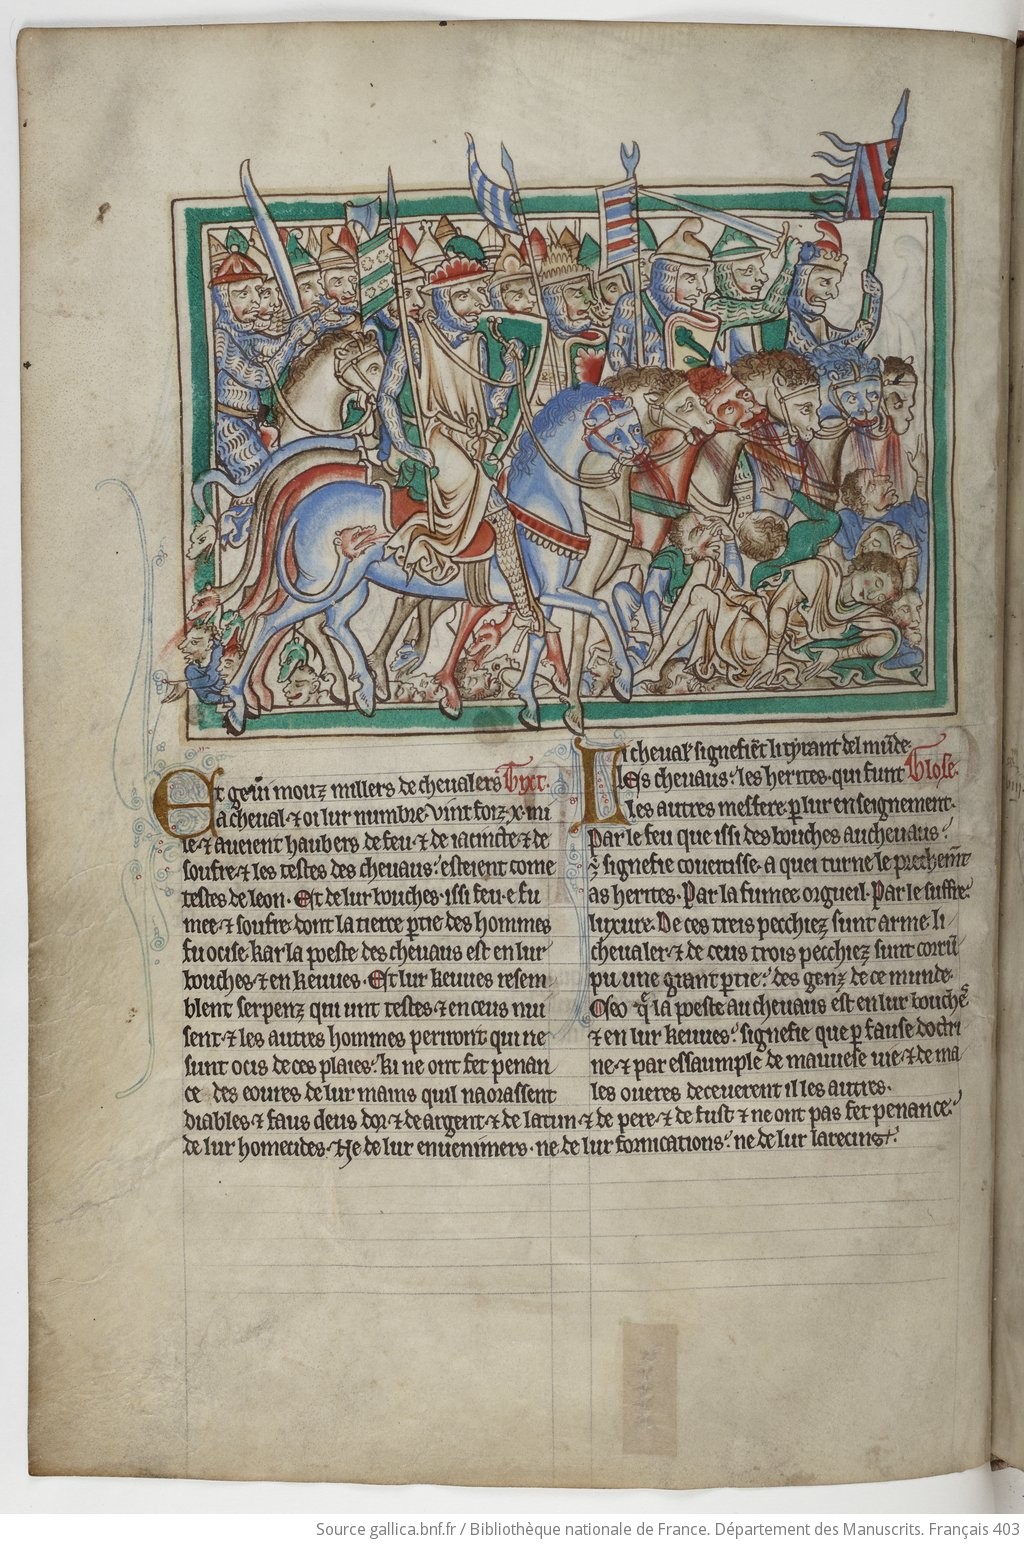 Et gevi mouz millers de chevalers Tixt.
a cheval ⁊ oi lur numbre. vint foiz .x. mi
le ⁊ aveient haubers de feu ⁊ de iacincte ⁊ de
soufre ⁊ les testes des chevaus esteient come
testes de leon. Et de lur bouches issi feu e fu
mee ⁊ soufre dont la tierce ptie des hommes
fu ocise kar la poeste des chevaus est en lur
bouches ⁊ en keuues. Et lur keuues resem
blent serpenz qui unt testes ⁊ en ceus nui
sent ⁊ les autres hommes qui ne
sunt ocis de ces plaies ki ne ont fet penan
ce des eoures de lur mains quil naorassent
Li cheval signefiēt li tyrant del mūde.
Les chevaus les herites qui funt Glose.
les autres messere p lur enseignement.
Par le feu que issi des bouches au chevaus
signefie coveitisse a quei turne le
as herites. Par la fumee orgueil. Par le suffre
luxure. De ces treis pecchiez sunt arme li
chevaler ⁊ de ceus trois pecchiez sunt corrū
pu une grant ptie des genz de ce munde.
Ceo q̄ la poeste au chevaus est en lur bouche
⁊ en lur keuues signefie que p fause doctri
ne ⁊ par essaumple de mauueise uie ⁊ de ma
les oueres deceuerent il les autres.
diables ⁊ faus deus dor ⁊ de argent ⁊ de latun ⁊ de pere ⁊ de fust ⁊ ne ont pas fet penance
de lur homecides. Ne de lur envenimers. ne de lur fornications ne de lur larecins.
Source gallica.bnf.fr / Bibliothèque nationale de France. Département des Manuscrits. Français 403